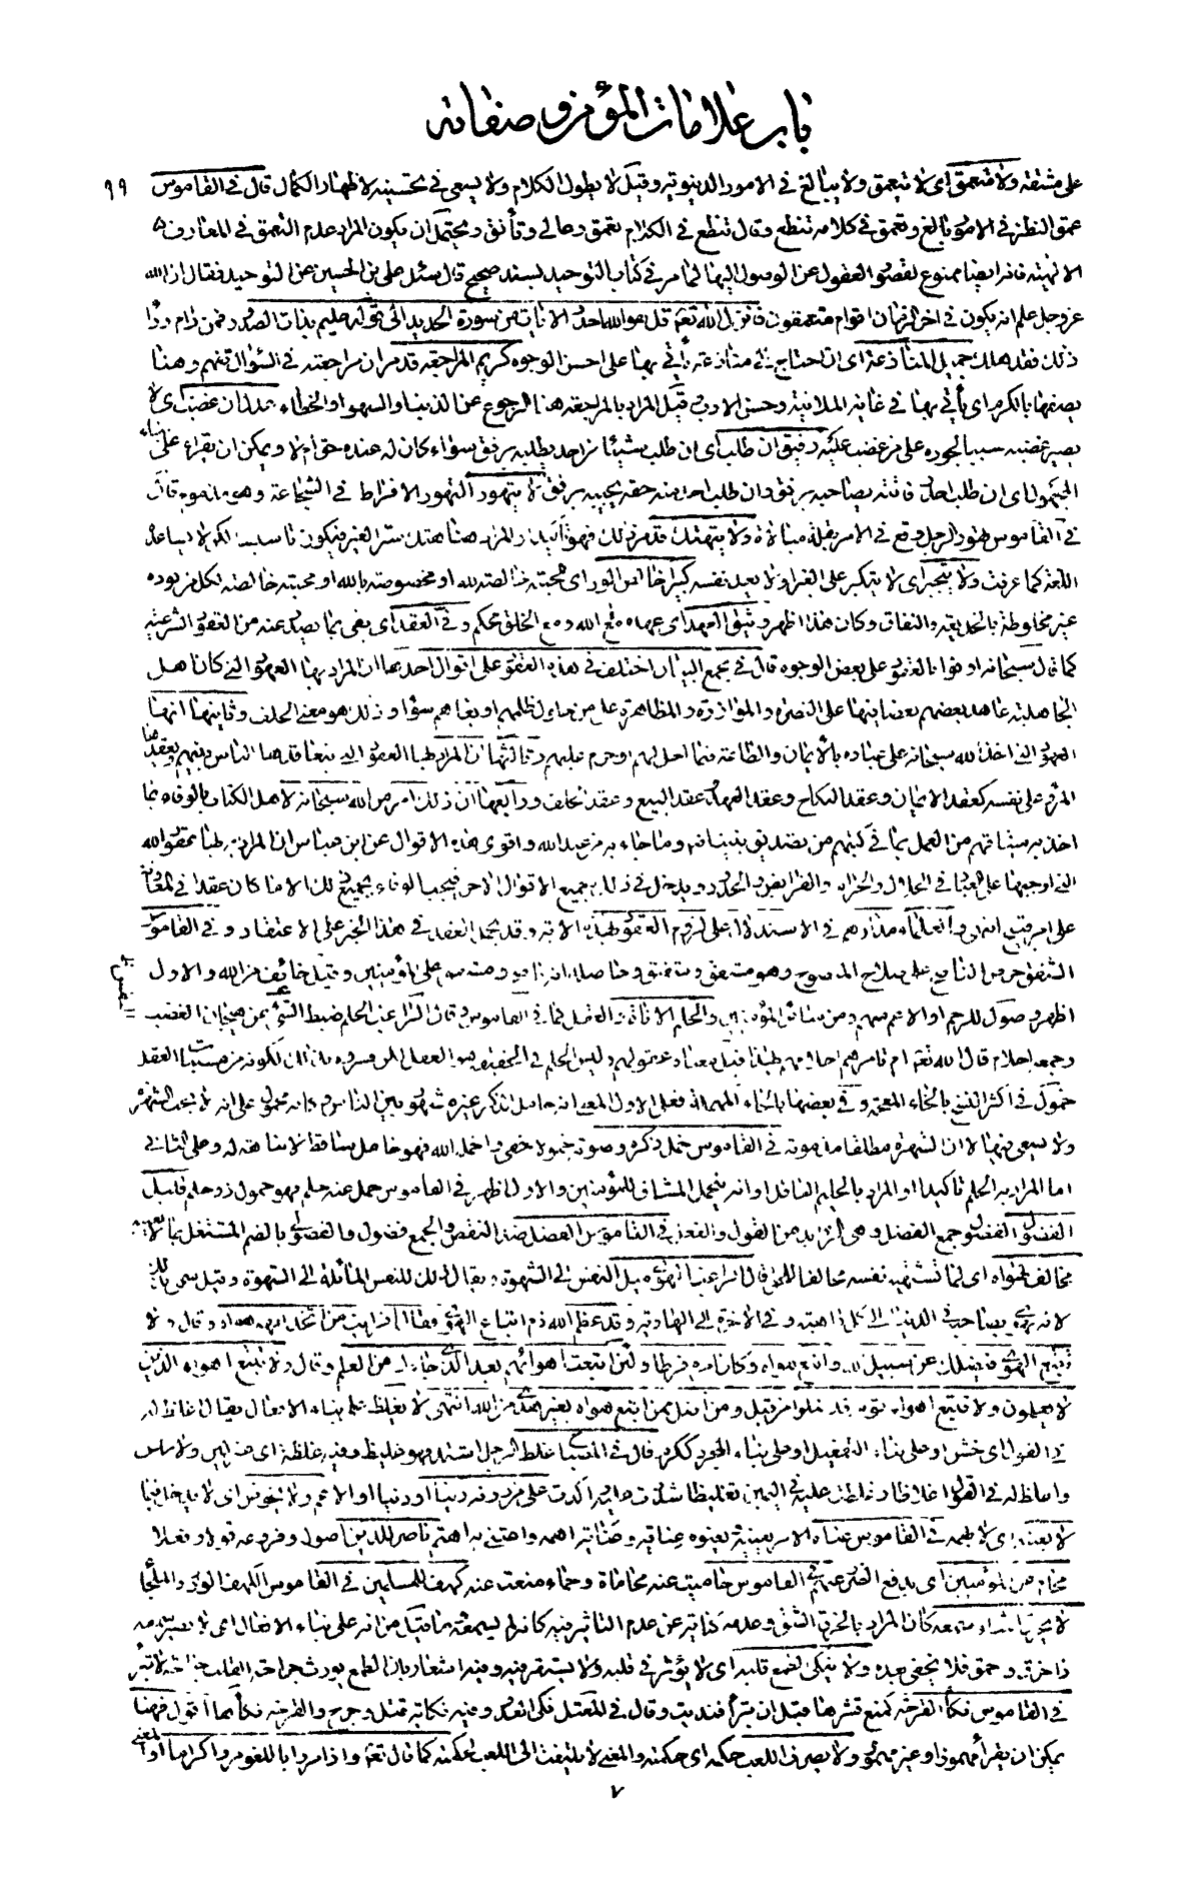 باب علامات المؤمن و صفاته
على مشقة ولا متعمق اى لا يتعمق ولا يبالغ فى الامور الدنيوية وقيل لا يطول الكلام ولا يسعى فى تحسينه لاظهار الكمال قال فى القاموس ٩٩
عمق النظر فى الامور بالغ وتعمق فى كلامه تنطع وقال تنطع فى الكلام تعمق وغالى وتأنق ويحتمل ان يكون المراد عدم التعمق فى المعارف
الالهية فانه ايضا ممنوع لقصور العقول عن الوصول اليها لما مر فى كتاب التوحيد بسند صحيح قال سئل على بن الحسين عن التوحيد فقال ان الله
عز وجل علم انه يكون فى اخر الزمان اقوام متعمقون فانزل الله تعم قل هو الله احد والايات من سورة الحديد الى قوله عليم بذات الصدور فمن رام وراء
ذلك فقد هلك جميل المنازعة اى ان احتاج الى منازعة يأتى بها على احسن الوجوه كريم المراجعة قد مر ان مراجعته فى السؤال تفهم وهنا
يصفها بالكرم اى يأتى بها فى غاية الملاينة وحسن الادب وقيل المراد بالمراجعة هنا الرجوع عن الذنب او السهو او الخطاء عدل ان غضب اى لا
يصير غضبه سببا لجوره على من غضب عليه رفيق ان طلب اى ان طلب شيئا من احد يطلبه برفق سواء كان له عنده حق ام لا ويمكن ان يقراء على بناء
المجهول اى ان طلب احد رفاقته يصاحبه برفق وان طلب احد منه حقه يجيبه برفق لا يتهور التهور الافراط فى الشجاعة وهو مذموم قال
فى القاموس تهور الرجل وقع فى الامر بقلة مبالاة ولا يتهتك قد مر ذلك فهو تأكيد او المراد هنا هتك ستر الغير فيكون تأسيسا لكن لا يساعده
اللغة كما عرفت ولا يتجبر اى لا يتكبر على الغير او لا يعد نفسه كبيرا خالص الود اى محبته خالصة لله او مخصوصة بالله او محبته خالصة لكل من يوده
غير مخلوطة بالخديعة والنفاق وكان هذا اظهر وثيق العهد اى عهده مع الله ومع الخلق محكم وفى العقد اى يفى بما يصدر عنه من العقود الشرعية
كما قال سبحانه اوفوا بالعقود على بعض الوجوه قال فى مجمع البيان اختلف فى هذه العقود على اقوال احدها ان المراد بها العهود التى كان اهل
الجاهلية عاهد بعضهم بعضا فيها على النصرة والموازرة والمظاهرة على من حاول ظلمهم او بغاهم سوءا وذلك هو معنى الحلف وثانيها انها
العهود التى اخذ الله سبحانه على عباده بالايمان والطاعة فيما احل لهم او حرم عليهم وثالثها ان المراد بها العقود التى يتعاقدها الناس بينهم ويعقدها
المرء على نفسه كعقد الايمان وعقد النكاح وعقد العهد وعقد البيع وعقد الحلف ورابعها ان ذلك امر من الله سبحانه لاهل الكتاب بالوفاء بما
اخذ به ميثاقهم من العمل بما فى كتبهم من تصديق نبينا ص وما جاء به من عند الله واقوى هذه الاقوال عن ابن عباس ان المراد بها عقود الله
التى اوجبها على العباد فى الحلال والحرام والفرائض والحدود ويدخل فى ذلك جميع الاقوال الاخر فيجب الوفاء بجميع ذلك الا ما كان عقدا فى المعاونة
على امر قبيح انتهى
الشفق حرص الناصح على صلاح المنصوح وهو مشفق وشفيق
اظهر وصول للرحم او الاعم منهم ومن سائر المؤمنين والحلم الاناة والعقل كما فى القاموس وقال الراغب الحلم ضبط النفس عن هيجان الغضب
وجمعه احلام قال الله تعم ام تأمرهم احلامهم بهذا قيل معناه عقولهم وليس الحلم فى الحقيقة هو العقل لكن فسروه بذلك لكونه من مسببات العقل
خمول فى اكثر النسخ بالخاء المعجمة وفى بعضها بالحاء المهملة فعلى الاول المعنى انه خامل الذكر غير مشهور بين الناس وكانه محمول على انه لا يحب الشهرة
ولا يسعى فيها لا ان الشهرة مطلقا مذمومة فى القاموس خمل ذكره وصوته خمولا خفى واخمله الله فهو خامل ساقط لا نباهة له وعلى الثانى
اما المراد به الحلم تأكيدا او المراد بالحليم العاقل او انه يتحمل المشاق للمؤمنين والاول اظهر فى القاموس حمل عنه حلم فهو حمول ذو حلم قليل
الفضول الفضول جمع الفضل وهى الزايد من القول والفعل فى القاموس الفضل ضد النقص والجمع فضول والفضولى بالضم المشتغل بما لا يعنيه
مخالف لهواه اى لما تشتهيه نفسه مخالفا للحق قال الراغب الهوى ميل النفس الى الشهوة ويقال ذلك للنفس المائلة الى الشهوة وقيل سمى بذلك
لانه يهوى بصاحبه فى الدنيا الى كل داهية وفى الاخرة الى الهاوية وقد عظم الله ذم اتباع الهوى فقال افرايت من اتخذ الهه هواه وقال ولا
تتبع الهوى فيضلك عن سبيل الله واتبع هواه وكان امره فرطا ولئن اتبعت اهوائهم بعد الذى جاءك من العلم وقال ولا تتبع اهواء الذين
لا يعلمون ولا تتبع اهواء قوم قد ضلوا من قبل ومن اضل ممن اتبع هواه بغير هدى من الله انتهى لا يغلظ على بناء الافعال يقال اغلظ له
فى القول اى خشن او على بناء التفعيل او على بناء المجرد ككرم قال فى المصباح غلظ الرجل اشتد فهو غليظ وفيه غلظة اى غير لين ولا سلس
واغلظ له فى القول اغلاظا وغلظت عليه فى اليمين تغليظا شددت عليه واكدت على من دونه دينا او دنيا او الاعم ولا يخوض اى لا يدخل فيما
لا يعنيه اى لا يهمه فى القاموس عناه الامر يعنيه ويعنوه عناية وعناية اهمه واعتنى به اهتم ناصر للدين اصوله وفروعه قولا وفعلا
محام عن المؤمنين اى يدفع الضرر عنهم فى القاموس حاميت عنه محاماة وحماء منعت عنه كهف للمسلمين فى القاموس الكهف الوزر والملجأ
لا يخرق الثناء سمعه كان المراد بالخرق الشق وعدمه كناية عن عدم التاثير فيه كانه لم يسمعه
ولا ينكى الطمع قلبه اى لا يؤثر فى قلبه ولا يستقر فيه وفيه اشعار بان الطمع يورث جراحة القلب جراحة لا تبرأ
فى القاموس نكأ القرحة كمنع قشرها قبل ان تبرأ فنديت وقال فى المعتل نكى العدو وفيه نكاية قتل وجرح والقرحة نكأها اقول فهنا
يمكن ان يقرأ مهموزا وغير مهموز ولا يصرف اللعب حكمه اى حكمته والمعنى لا يلتفت الى اللعب لحكمته كما قال تعم واذا مروا باللغو مروا كراما او المعنى
٧